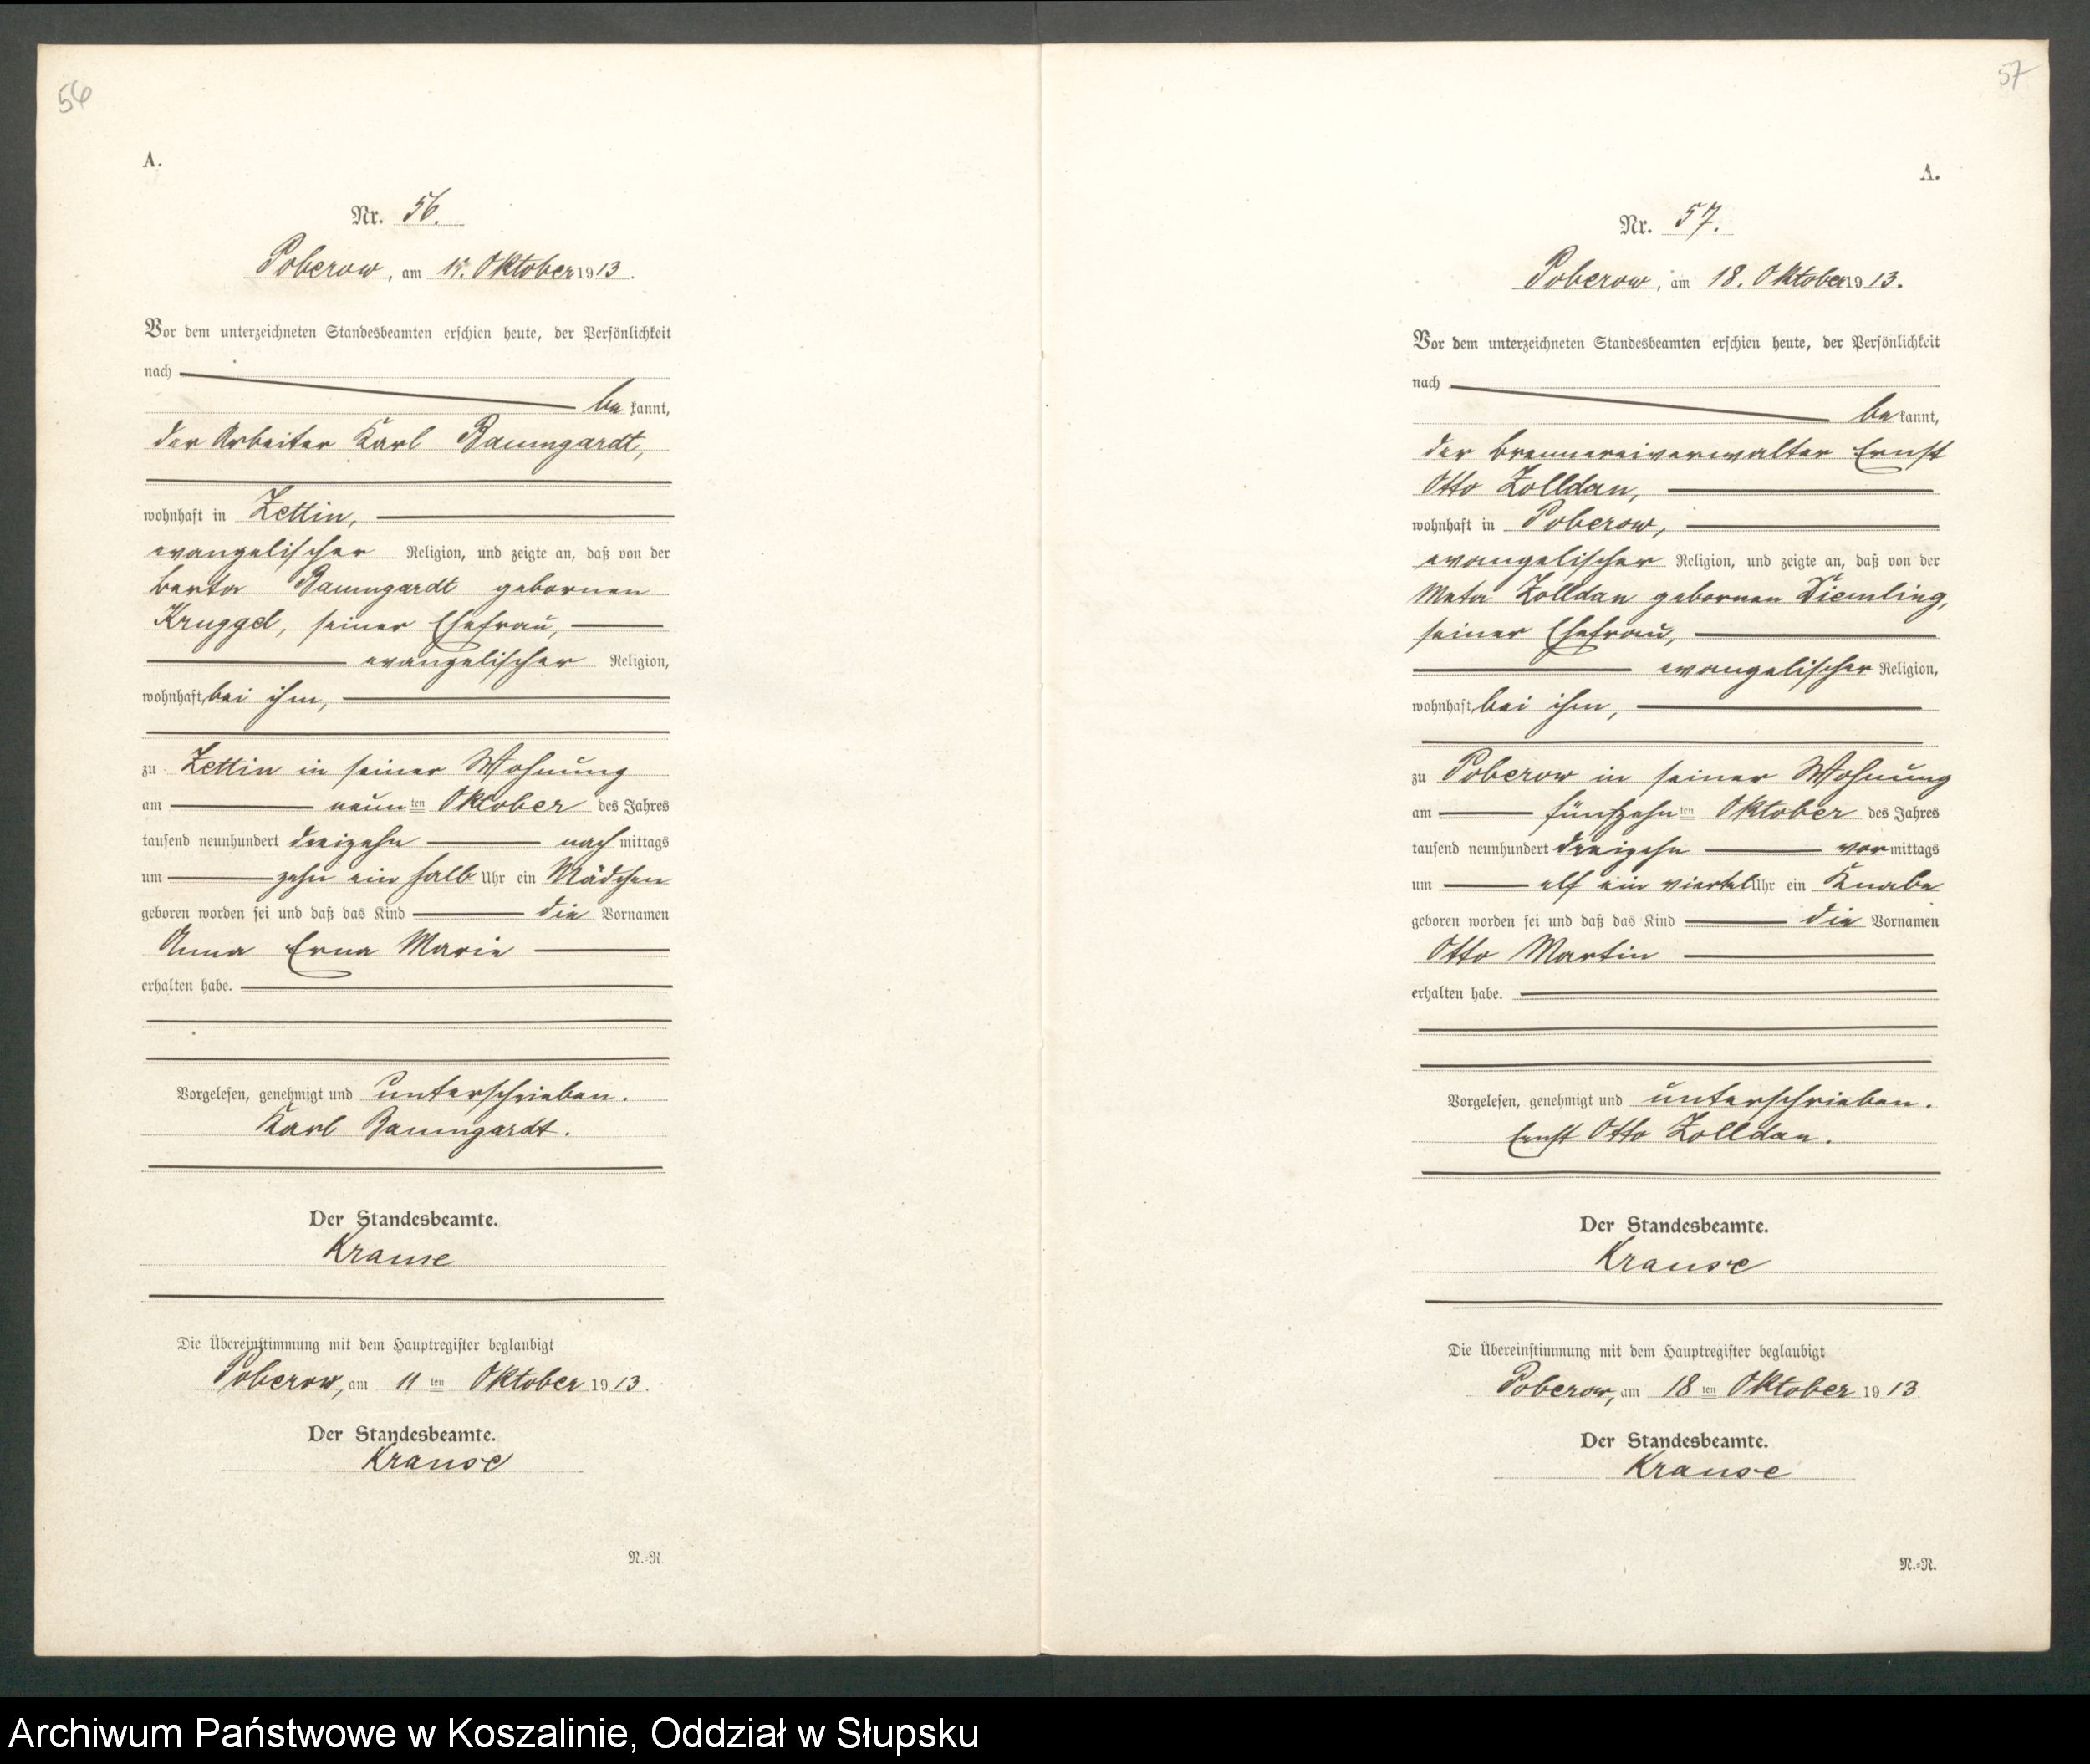 56
A.
Nr. 56.
Poberow, am 11. Oktober 1913.
Vor dem unterzeichneten Standesbeamten erschien heute, der Persönlichkeit
nach
be kannt,
der Arbeiter Karl Baumgardt,
wohnhaft in Zettin,
evangelischer Religion, und zeigte an, daß von der
Berta Baumgardt gebornen
Kruggel, seiner Ehefrau,
evangelischer Religion,
wohnhaft bei ihm,
zu Zettin in seiner Wohnung
am neun ten Oktober des Jahres
tausend neunhundert dreizehn nach mittags
um zehn ein halb Uhr ein Mädchen
geboren worden sei und daß das Kind die Vornamen
Anna Erna Marie
erhalten habe.
Vorgelesen, genehmigt und unterschrieben.
Karl Baumgardt.
Der Standesbeamte.
Krause
Die Übereinstimmung mit dem Hauptregister beglaubigt
Poberow, am 11 ten Oktober 1913.
Der Standesbeamte.
Krause
N.=R.
57
A.
Nr. 57.
Poberow, am 18. Oktober 1913.
Vor dem unterzeichneten Standesbeamten erschien heute, der Persönlichkeit
nach
be kannt,
der Brennereiverwalter Ernst
Otto Zolldan,
wohnhaft in Poberow,
evangelischer Religion, und zeigte an, daß von der
Meta Zolldan gebornen Diemling,
seiner Ehefrau,
evangelischer Religion,
wohnhaft bei ihm,
zu Poberow in seiner Wohnung
am fünfzehn ten Oktober des Jahres
tausend neunhundert dreizehn vor mittags
um elf ein viertel Uhr ein Knabe
geboren worden sei und daß das Kind die Vornamen
Otto Martin
erhalten habe.
Vorgelesen, genehmigt und unterschrieben.
Ernst Otto Zolldan.
Der Standesbeamte.
Krause
Die Übereinstimmung mit dem Hauptregister beglaubigt
Poberow, am 18 ten Oktober 1913.
Der Standesbeamte.
Krause
N.=R.
Archiwum Państwowe w Koszalinie, Oddział w Słupsku